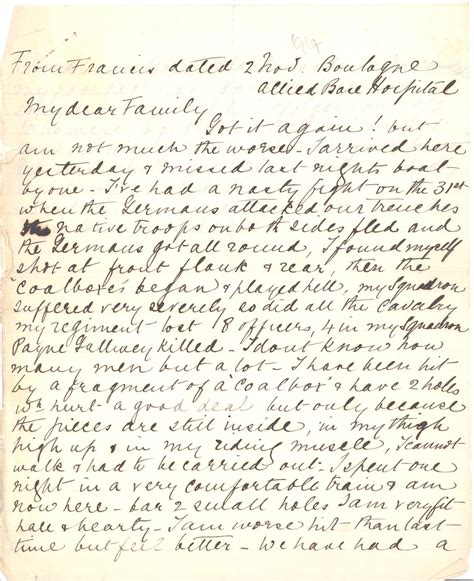 1914
From Francis dated 2 Nov. Boulogne
Allied Base Hospital
My dear Family
Got it again! but
am not much the worse - I arrived here
yesterday & missed last nights boat
by one - I've had a nasty fight on the 31st
when the Germans attacked our trenches
the native troops on both sides fled and
the Germans got all round, I found myself
shot at front flank & rear, then the
"coalboxes" began & played hell, my Squadron
suffered very severely so did all the Cavalry
my regiment lost 8 officers, 4 in my Squadron
Payne Gallwey killed - I dont know how
many men but a lot - I have been hit
by a fragment of a "coalbox" & have 2 holes
wh hurt a good deal but only because
the pieces are still inside, in my thigh
high up & in my riding muscle, I cannot
walk & had to be carried out - I spent one
night in a very comfortable train & am
now here - bar 2 small holes I am very fit
hale & hearty - I am worse hit than last
time but feel better - We have had a